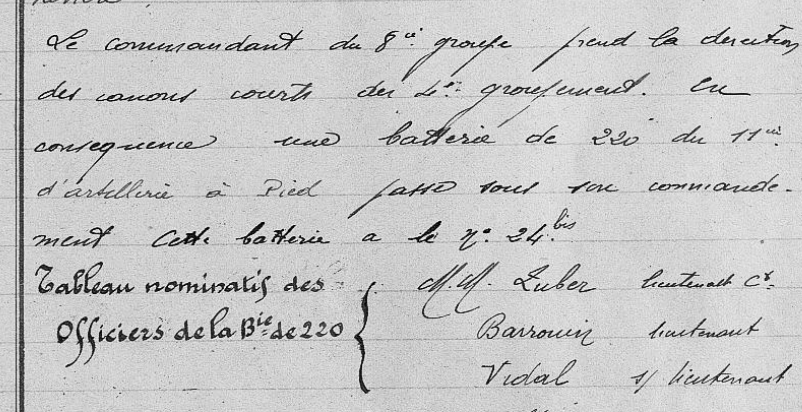 Le commandant du 8e groupe prend la direction
des canons courts du 4e groupement. En
consequence une batterie de 220 du 11e
d'artillerie à Pied passe sous son commande-
ment Cette batterie a le n° 24 bis
Tableau nominatif des M.M. Zuber lieutenant Ct
Officiers de la Bie de 220 Barrouin lieutenant
Vidal s/lieutenant